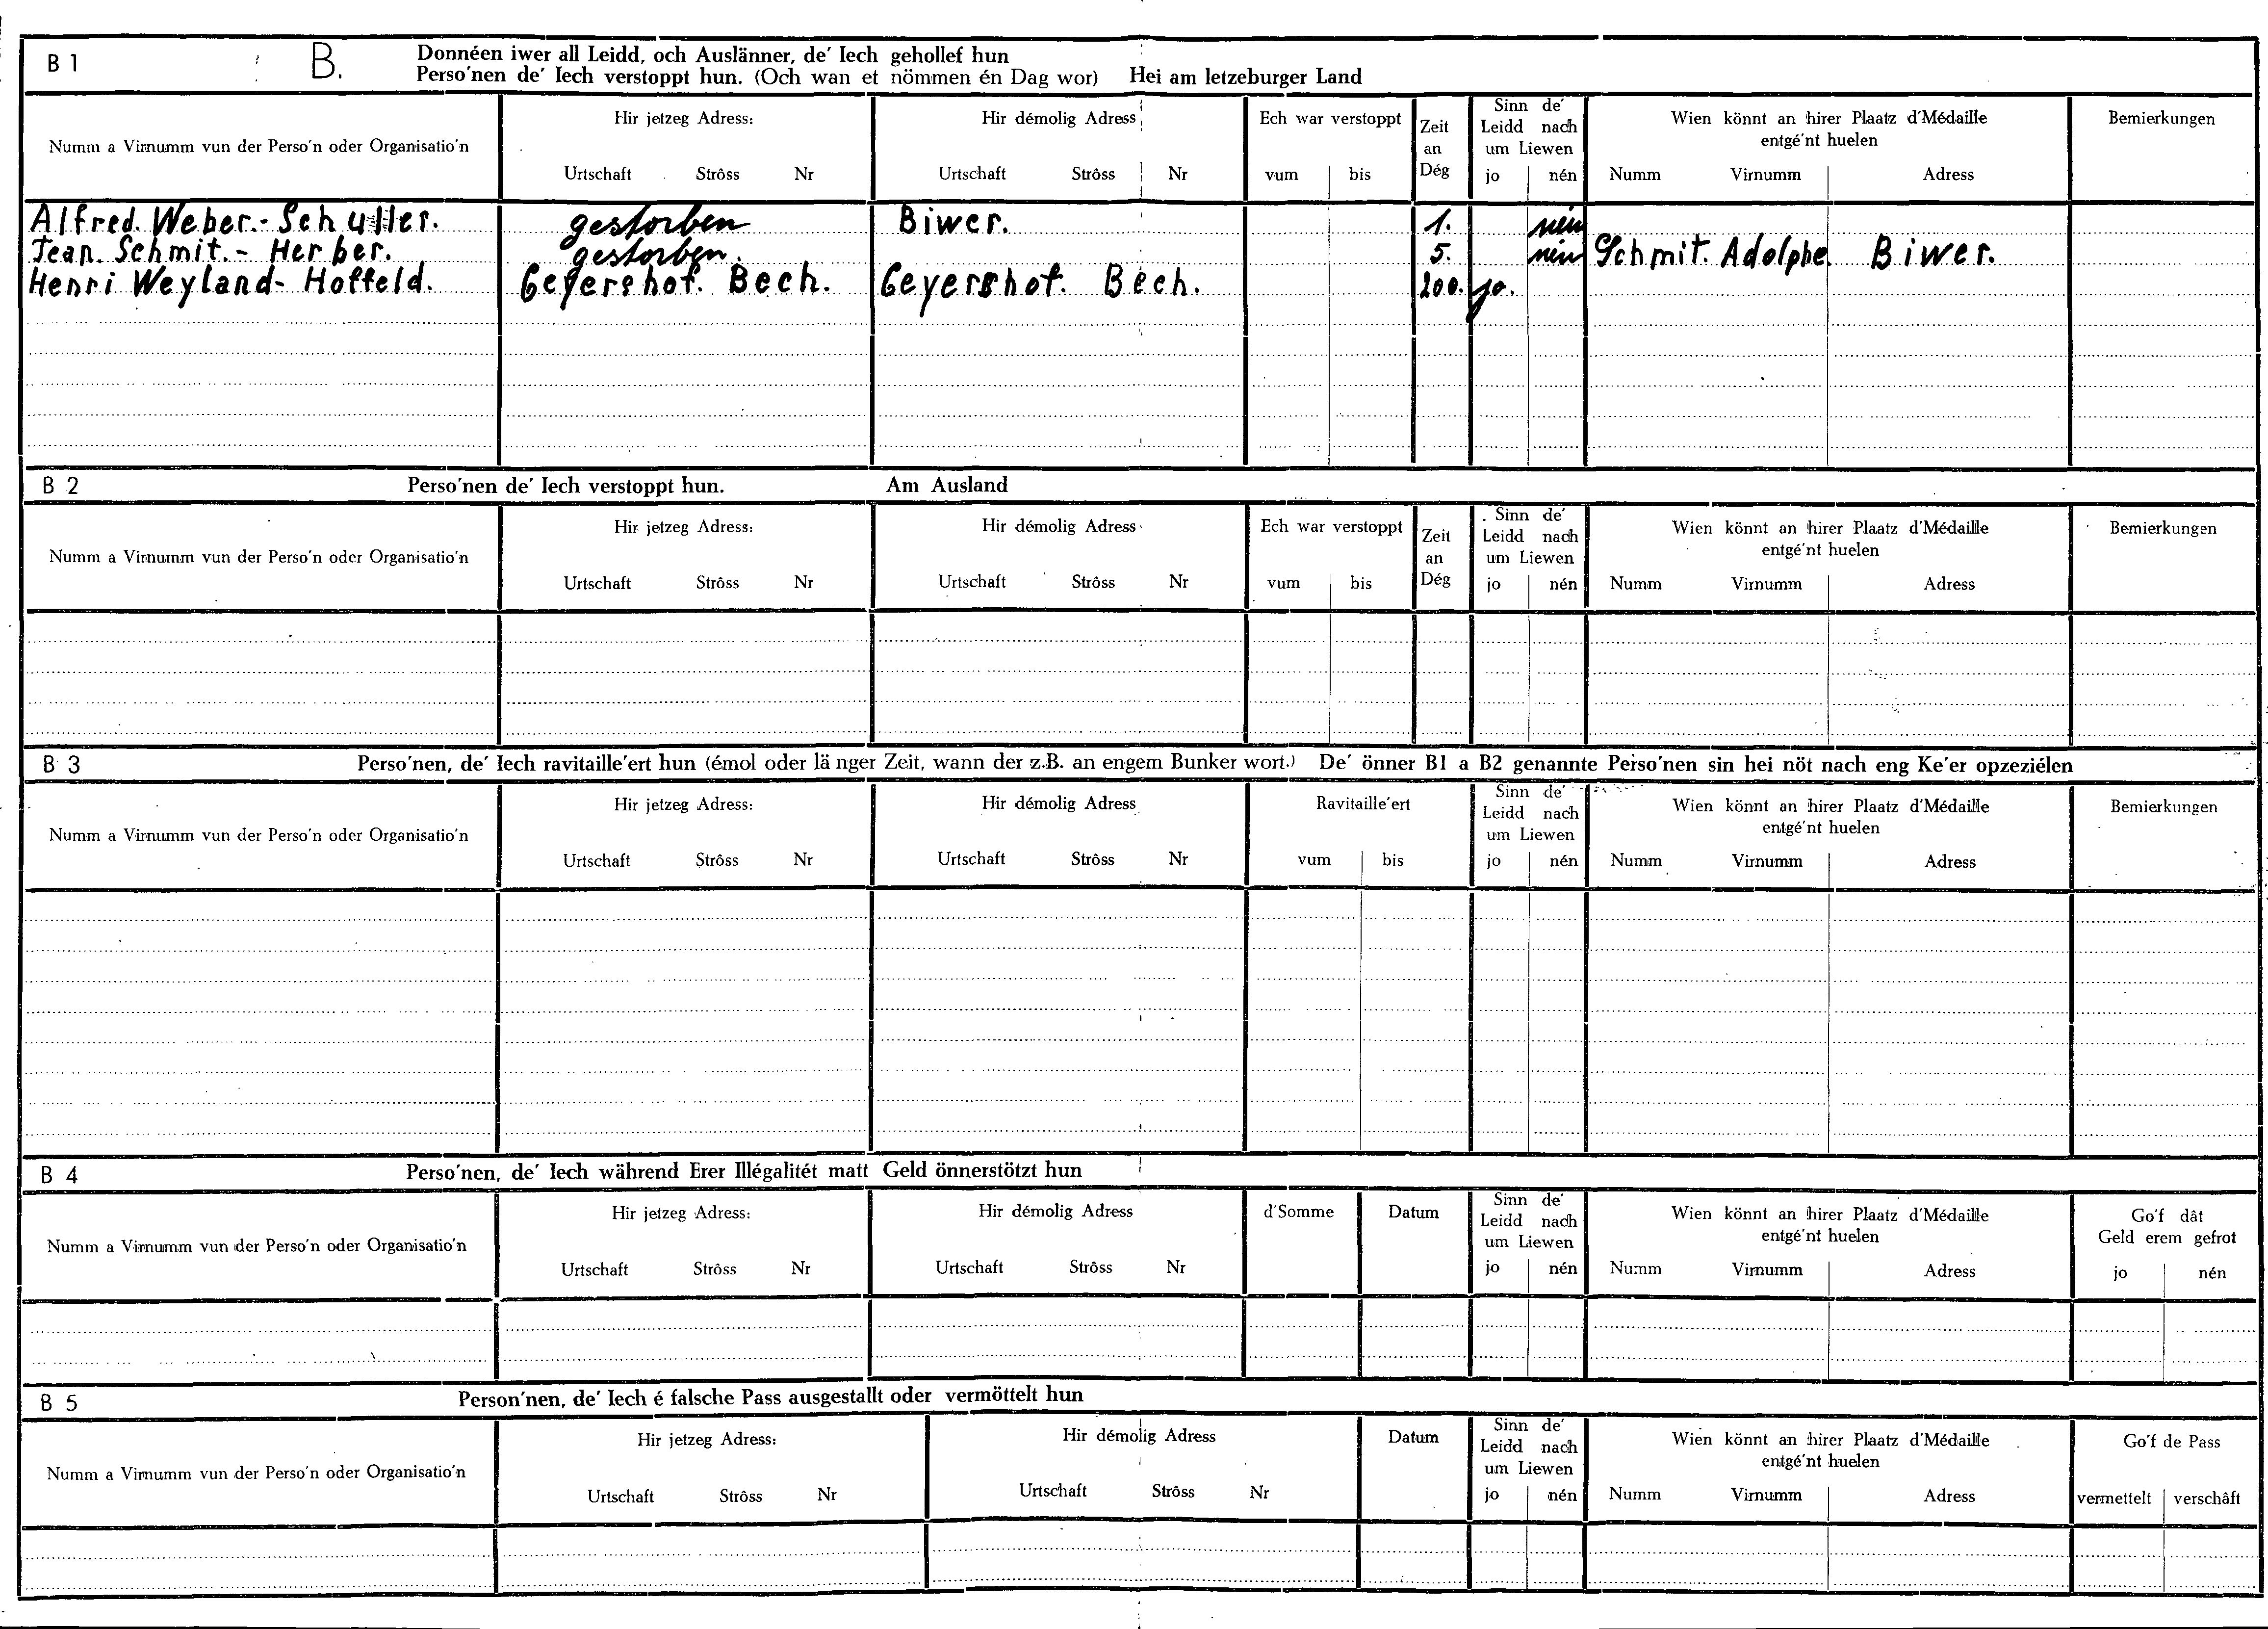 B 1 B. Donnéen iwer all Leidd, och Auslänner, de' Iech gehollef hun
Perso'nen de' Iech verstoppt hun. (Och wan et nömmen én Dag wor) Hei am letzeburger Land
Numm a Virnumm vun der Perso'n oder Organisatio'n
Hir jetzeg Adress:
Urtschaft Strôss Nr
Hir démolig Adress
Urtschaft Strôss Nr
Ech war verstoppt
vum bis
Zeit
an
Dég
Sinn de'
Leidd nach
um Liewen
jo nén
Wien könnt an hirer Plaatz d'Médaille
entgé'nt huelen
Numm Virnumm Adress
Bemierkungen
Alfred. Weber.-Schuller. gestorben Biwer. 1. nein
Jean. Schmit.- Herber. gestorben. 5. nein Schmit. Adolphe Biwer.
Henri Weyland- Hoffeld. Geyershof. Bech. Geyershof. Bech. 200. jo.
B 2 Perso'nen de' Iech verstoppt hun. Am Ausland
Numm a Virnumm vun der Perso'n oder Organisatio'n
Hir jetzeg Adress:
Urtschaft Strôss Nr
Hir démolig Adress
Urtschaft Strôss Nr
Ech war verstoppt
vum bis
Zeit
an
Dég
Sinn de'
Leidd nach
um Liewen
jo nén
Wien könnt an hirer Plaatz d'Médaille
entgé'nt huelen
Numm Virnumm Adress
Bemierkungen
B 3 Perso'nen, de' Iech ravitaille'ert hun (émol oder länger Zeit, wann der z.B. an engem Bunker wort.) De' önner B1 a B2 genannte Perso'nen sin hei nöt nach eng Ke'er opzeziélen
Numm a Virnumm vun der Perso'n oder Organisatio'n
Hir jetzeg Adress:
Urtschaft Strôss Nr
Hir démolig Adress
Urtschaft Strôss Nr
Ravitaille'ert
vum bis
Sinn de'
Leidd nach
um Liewen
jo nén
Wien könnt an hirer Plaatz d'Médaille
entgé'nt huelen
Numm Virnumm Adress
Bemierkungen
B 4 Perso'nen, de' Iech während Erer Illégalitét matt Geld önnerstötzt hun
Numm a Virnumm vun der Perso'n oder Organisatio'n
Hir jetzeg Adress:
Urtschaft Strôss Nr
Hir démolig Adress
Urtschaft Strôss Nr
d'Somme
Datum
Sinn de'
Leidd nach
um Liewen
jo nén
Wien könnt an hirer Plaatz d'Médaille
entgé'nt huelen
Numm Virnumm Adress
Go'f dât
Geld erem gefrot
jo nén
B 5 Person'nen, de' Iech é falsche Pass ausgestallt oder vermöttelt hun
Numm a Virnumm vun der Perso'n oder Organisatio'n
Hir jetzeg Adress:
Urtschaft Strôss Nr
Hir démolig Adress
Urtschaft Strôss Nr
Datum
Sinn de'
Leidd nach
um Liewen
jo nén
Wien könnt an hirer Plaatz d'Médaille
entgé'nt huelen
Numm Virnumm Adress
Go'f de Pass
vermettelt verschâft